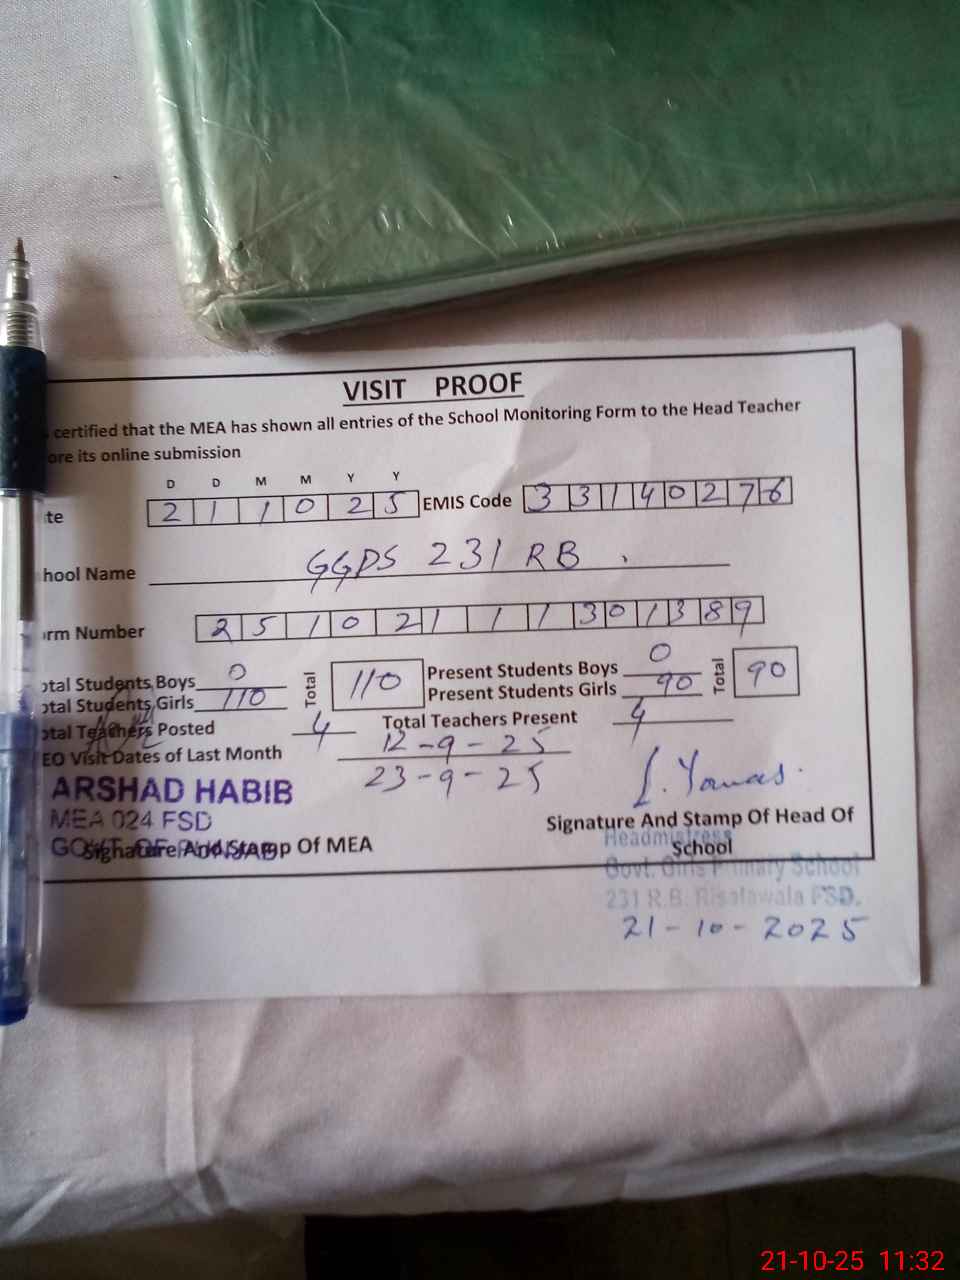 VISIT PROOF
certified that the MEA has shown all entries of the School Monitoring Form to the Head Teacher
ore its online submission
D D M M Y Y
te 21 10 25 EMIS Code 33140276
hool Name GGPS 231 RB.
rm Number 25102111301389
otal Students Boys 0 Total 110 Present Students Boys 0 Total 90
otal Students Girls 110 Present Students Girls 90
otal Teachers Posted 4 Total Teachers Present 4
EO Visit Dates of Last Month 12-9-25
23-9-25
ARSHAD HABIB
MEA 024 FSD
GOVT. OF PUNJAB
Signature And Stamp Of MEA
Signature And Stamp Of Head Of
School
Headmistress
Govt. Girls Primary School
231 R.B. Risalawala FSD.
21-10-2025
21-10-25 11:32